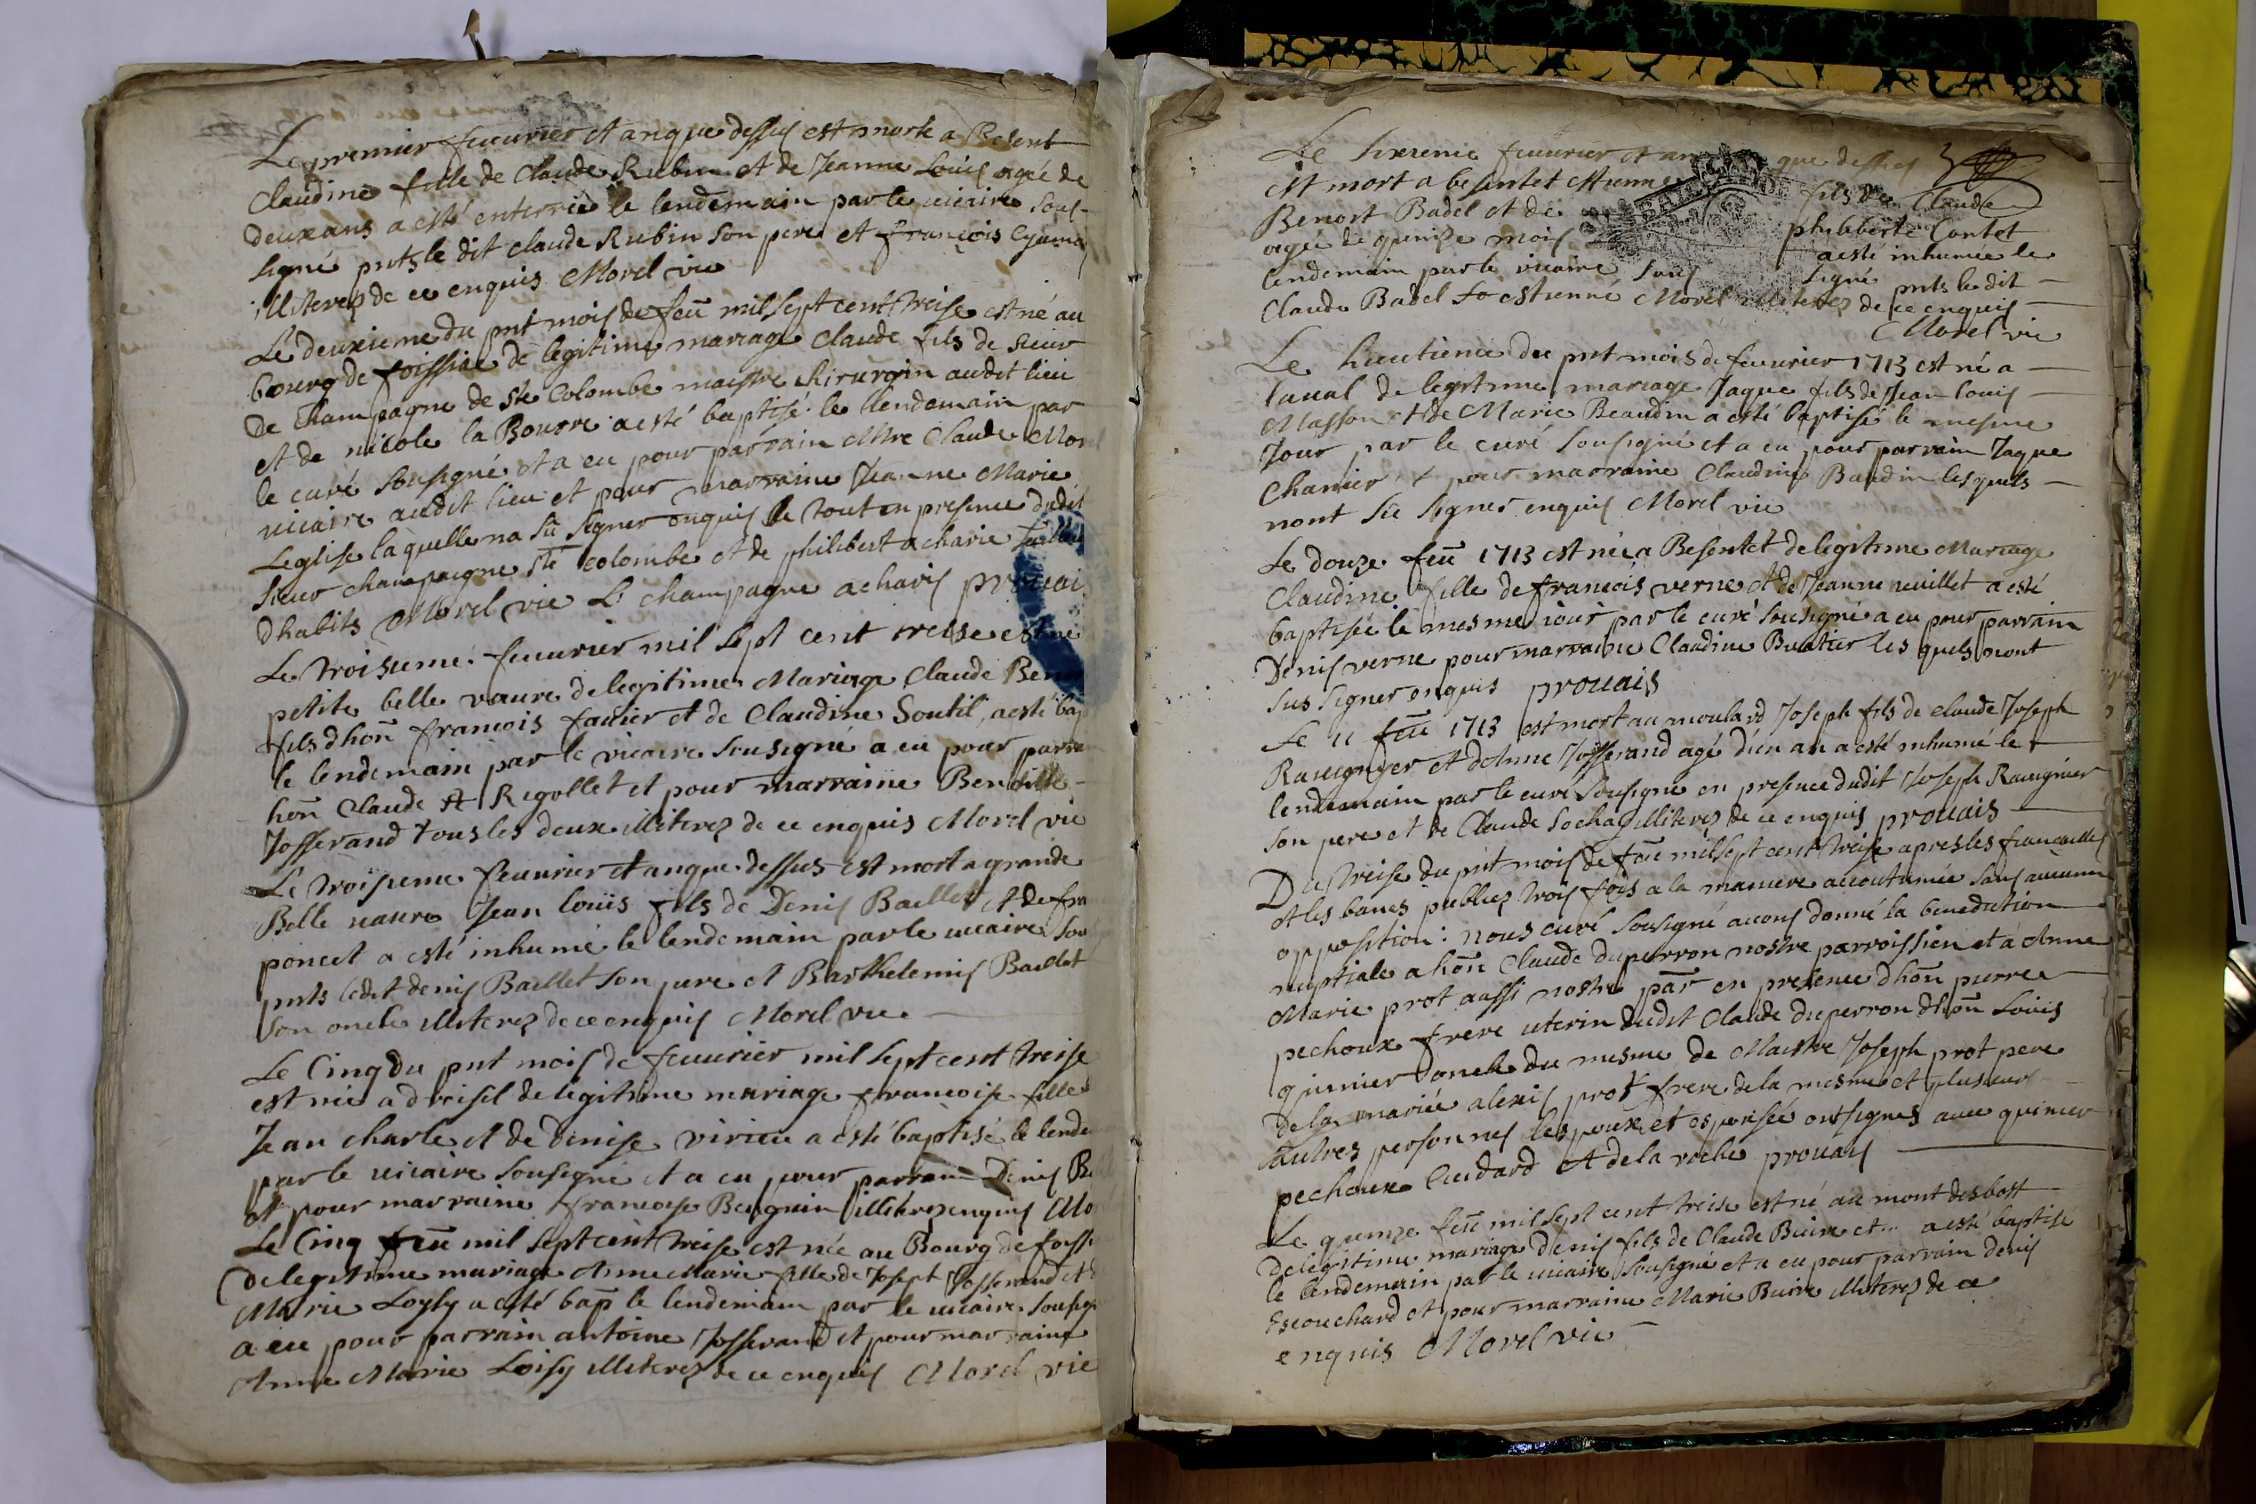 Le premier feuvrier et an que dessus est morte a Besent
Claudine fille de Claude Rubin et de Jeanne Loüis agée de
deux ans a esté enterrée le lendemain par le vicaire sous-
signé pnts le dit Claude Rubin son pere et françois
illiterez de ce enquis Morel vic
Le deuxieme du pnt mois de feü mil sept cent treise est né au
bourg de foissiat de legitime mariage Claude fils de sieur
de Champagne de Ste Colombe maistre chirurgin audit lieu
et de nicole la Bourre a esté baptisé le lendemain par
le curé sousigné et a eu pour parrain Mre Claude Morel
vicaire audit lieu et pour marraine Jeanne Marie
Leglise laquelle na sü signer enquis le tout en presence dudit
sieur champagne ste colombe et de philibert acharie
dhabits Morel vic L champagne acharis prouais
Le troisieme feuvrier mil sept cent treise est né
petite belle vavre de legitime Mariage Claude
fils dhoñ francois favier et de Claudine Soutil, a esté bap
le lendemain par le vicaire sousigné a eu pour parrain
hoñ Claude Rigollet et pour marraine Benoitte
Josserand tous les deux illiterez de ce enquis Morel vic
Le troisieme feuvrier et an que dessus est mort a grande
Belle vavre Jean loüis fils de Denis Baillet et de
poncet a esté inhumé le lendemain par le vicaire
pnts ledit denis Baillet son pere et Barthelemis Baillet
son oncle illiterez de ce enquis Morel vic
Le Cinq du pnt mois de feuvrier mil sept cent treise
est née a de legitime mariage francoise fille
Jean charle et de Denise virieu a esté baptisé le lende
par le vicaire sousigné et a eu pour parrain Denis
et pour marraine francoise Beuguin illiterez enquis
Le Cinq feü mil sept cent treise est née au Bourg de
de legitime mariage Anne Marie fille de Joseph Josserand et
Marie Loysy a esté bap̃ le lendemain par le vicaire
a eu pour parrain antoine Josserand et pour marraine
Anne Marie Loisy illiterez de ce enquis Morel vic
Le sixieme feuvrier et an que dessus
est mort a besentet Etienne fils de Claude
Benoit Badel et de philiberte Contet
agée de quinze mois a esté inhumée le
lendemain par le vicaire sous signé pnts le dit
Claude Badel et estienne Morel illiterez de ce enquis
Morel vic
Le huictieme du pnt mois de feuvrier 1713 est né a
laval de legitime mariage Jaque fils de Jean louis
Masson et de Marie Beaudin a esté baptisé le mesme
Jour par le curé sousigné et a eu pour parrain Jaque
Chanier et pour marraine Claudine Baudin lesquels
nont sü signer enquis Morel vic
Le douze feü 1713 est née a Besentet de legitime Mariage
Claudine fille de francois verne et de Jeanne neuillet a esté
baptisée le mesme iour par le curé sousigné a eu pour parrain
Denis verne pour marraine Claudine Buatier les quels nont
sus signer enquis prouais
Le 11 feü 1713 est mort au moulard Joseph fils de claude Joseph
Ravignyer et dAnne Josserand agé dun an a esté inhumé le
lendemain par le curé sousigné en presence dudit Joseph Ravignier
son pere et de Claude Sochay illiterez de ce enquis prouais
Du treise du pnt mois de feü mil sept cent treise apres les fiancailles
et les bancs publiez trois fois a la maniere accoutumée sans aucune
opposition: nous curé sousigné avons donné la benediction
nuptiale a hoñ Claude duperron nostre parroissien et a Anne
Marie prot aussi nostre par̃ en presence dhoñ pierre
pechoux frere uterin dudit Claude duperron dhoñ Louis
quinier oncle du mesme de Maistre Joseph prot pere
de la mariée alexis prot frere de la mesme et plusieurs
autres personnes les poux et espousée ont signes avec quinier
pechoux Cuidard et de la roche prouais
Le quinze feü mil sept cent treise est né au mont desbost
de legitime mariage Denis fils de Claude Buire et .. a esté baptisé
le lendemain par le vicaire sousigné et a eu pour parrain denis
Escouchard et pour marraine Marie Buire illiterez de ce
enquis Morel vic